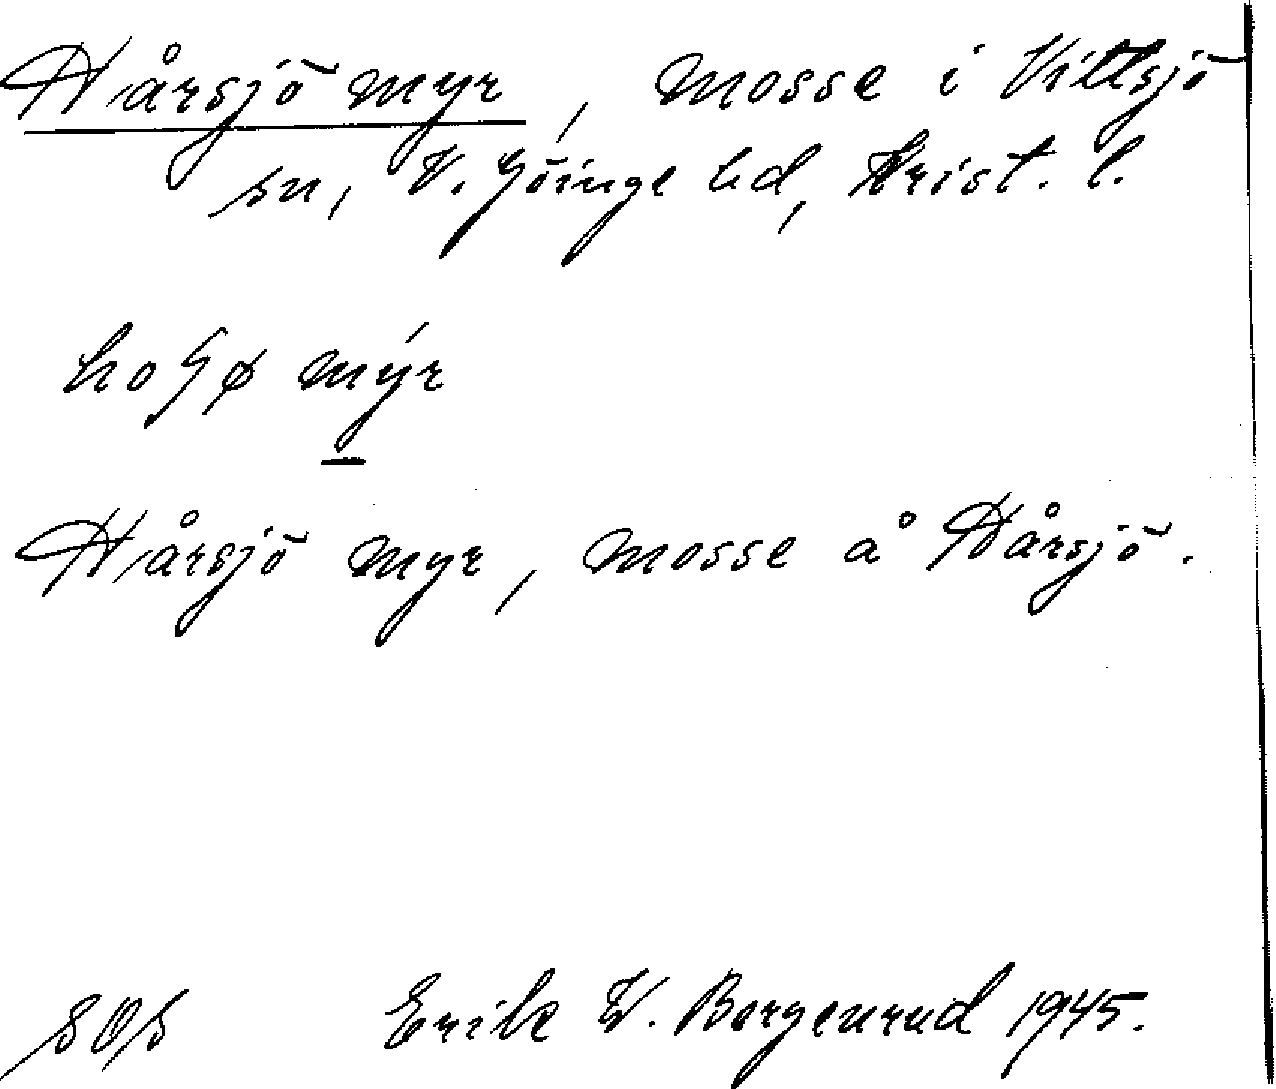 Hårsjö myr, mosse i Vittsjö
sn, V. Göinge hd, Krist. l.
hoʃø mýr
Hårsjö myr, mosse å Hårsjö.
Erik W. Borgenrud 1945.